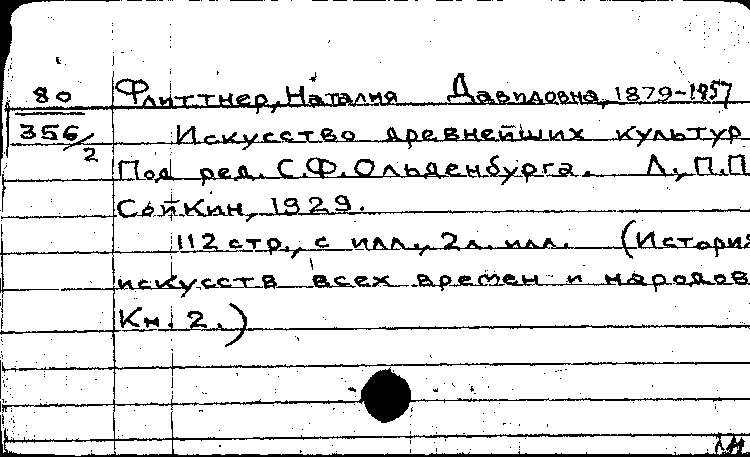 80 Флиттнер, Наталия Давидовна, 1879-1957
356/2 Искусство древнейших культур
Под ред. С.Ф.Ольденбурга. Л., П.П.
Сойкин, 1929.
112 стр., с илл., 2л. илл. (История
искусств всех времен и народов
Кн. 2.)